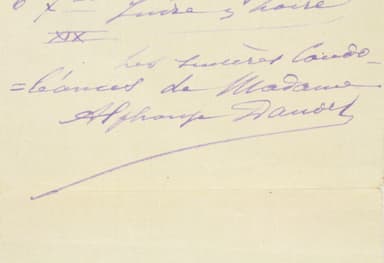 Indre & Loire
XIX
Les sincères Condo-
=léances de Madame
Alphonse Daudet